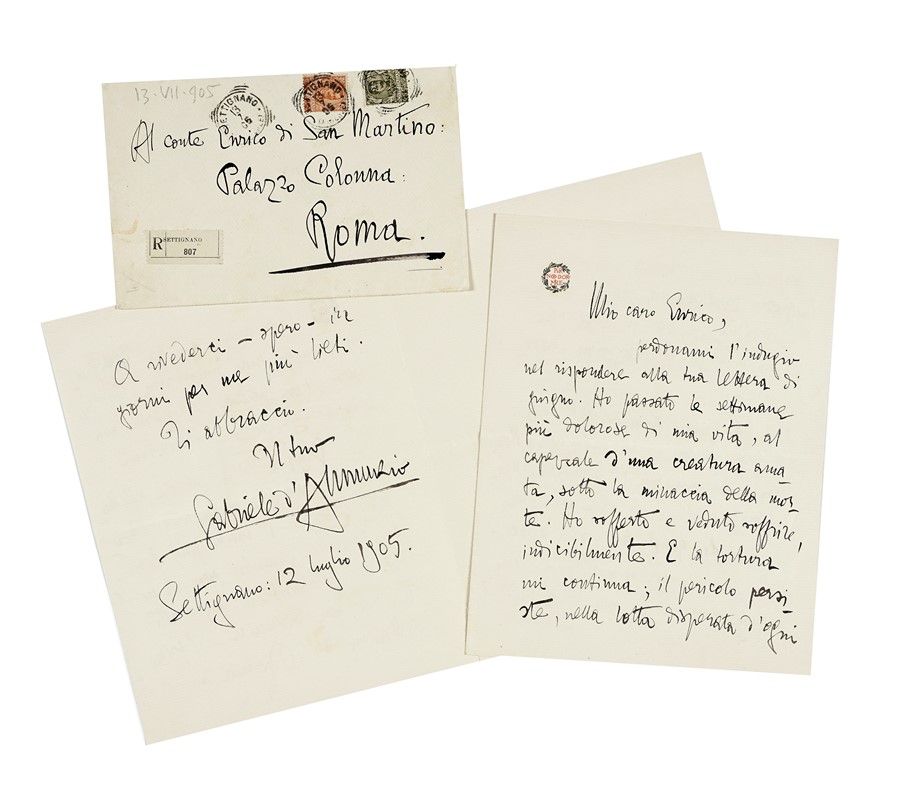 13·VII·905
SETTIGNANO
Al conte Enrico di San Martino:
Palazzo Colonna:
Roma.
R SETTIGNANO
807
PER
NON DOR
MIRE
Mio caro Enrico,
perdonami l'indugio
nel rispondere alla tua lettera di
giugno. Ho passato le settimane
più dolorose di mia vita, al
capezzale d'una creatura ama-
ta, sotto la minaccia della mor-
te. Ho sofferto e veduto soffrire,
indicibilmente. E la tortura
mi continua; il pericolo persi-
ste, nella lotta disperata d'ogni
A rivederci – spero – in
giorni per me più lieti.
Ti abbraccio.
Il tuo
Gabriele d'Annunzio
Settignano: 12 luglio 1905.